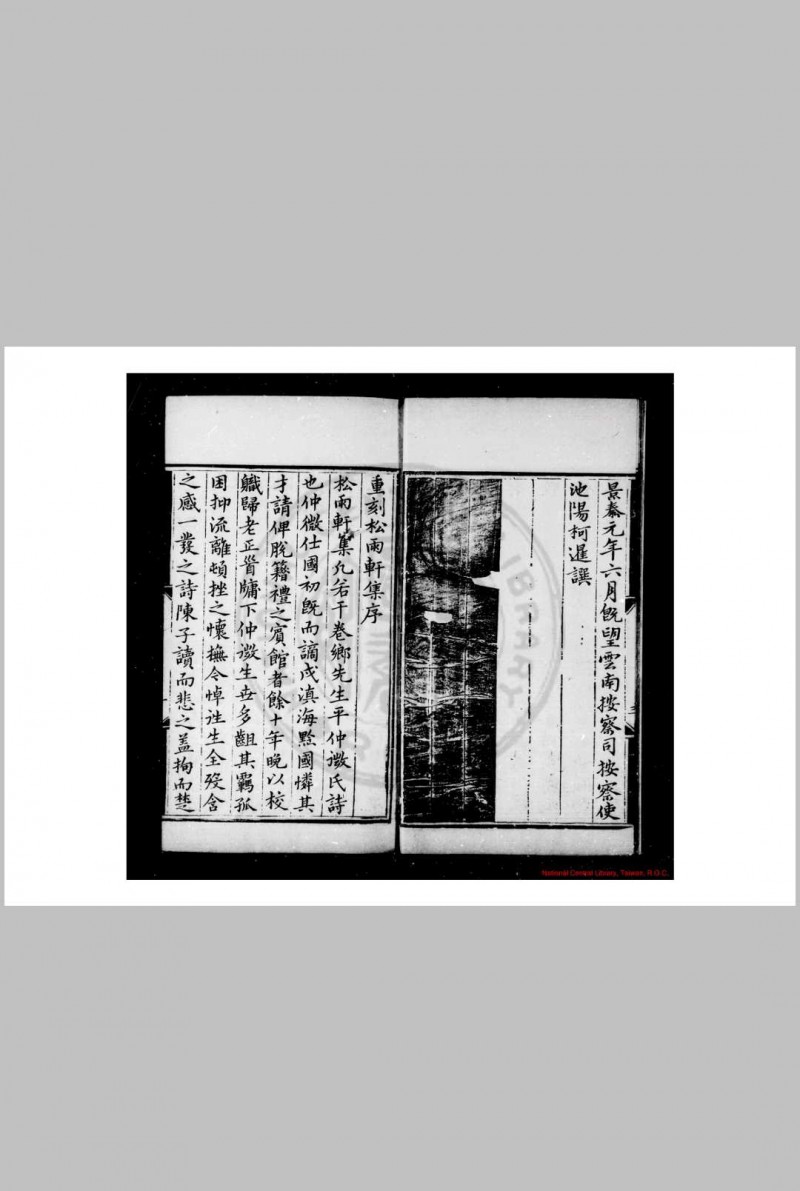 景泰元年六月既望雲南按察司按察使
池陽柯暹譔
重刻松雨軒集序
松雨軒集凡若干卷鄉先生平仲微氏詩
也仲微仕國初既而謫戍滇海黔國憐其
才請俾脫籍禮之賓館者餘十年晚以校
職歸老正首牖下仲微生世多齟其羈孤
困抑流離頓挫之懷撫今悼往生全歿含
之感一發之詩陳子讀而悲之蓋拘而楚
National Central Library, Taiwan, R.O.C.